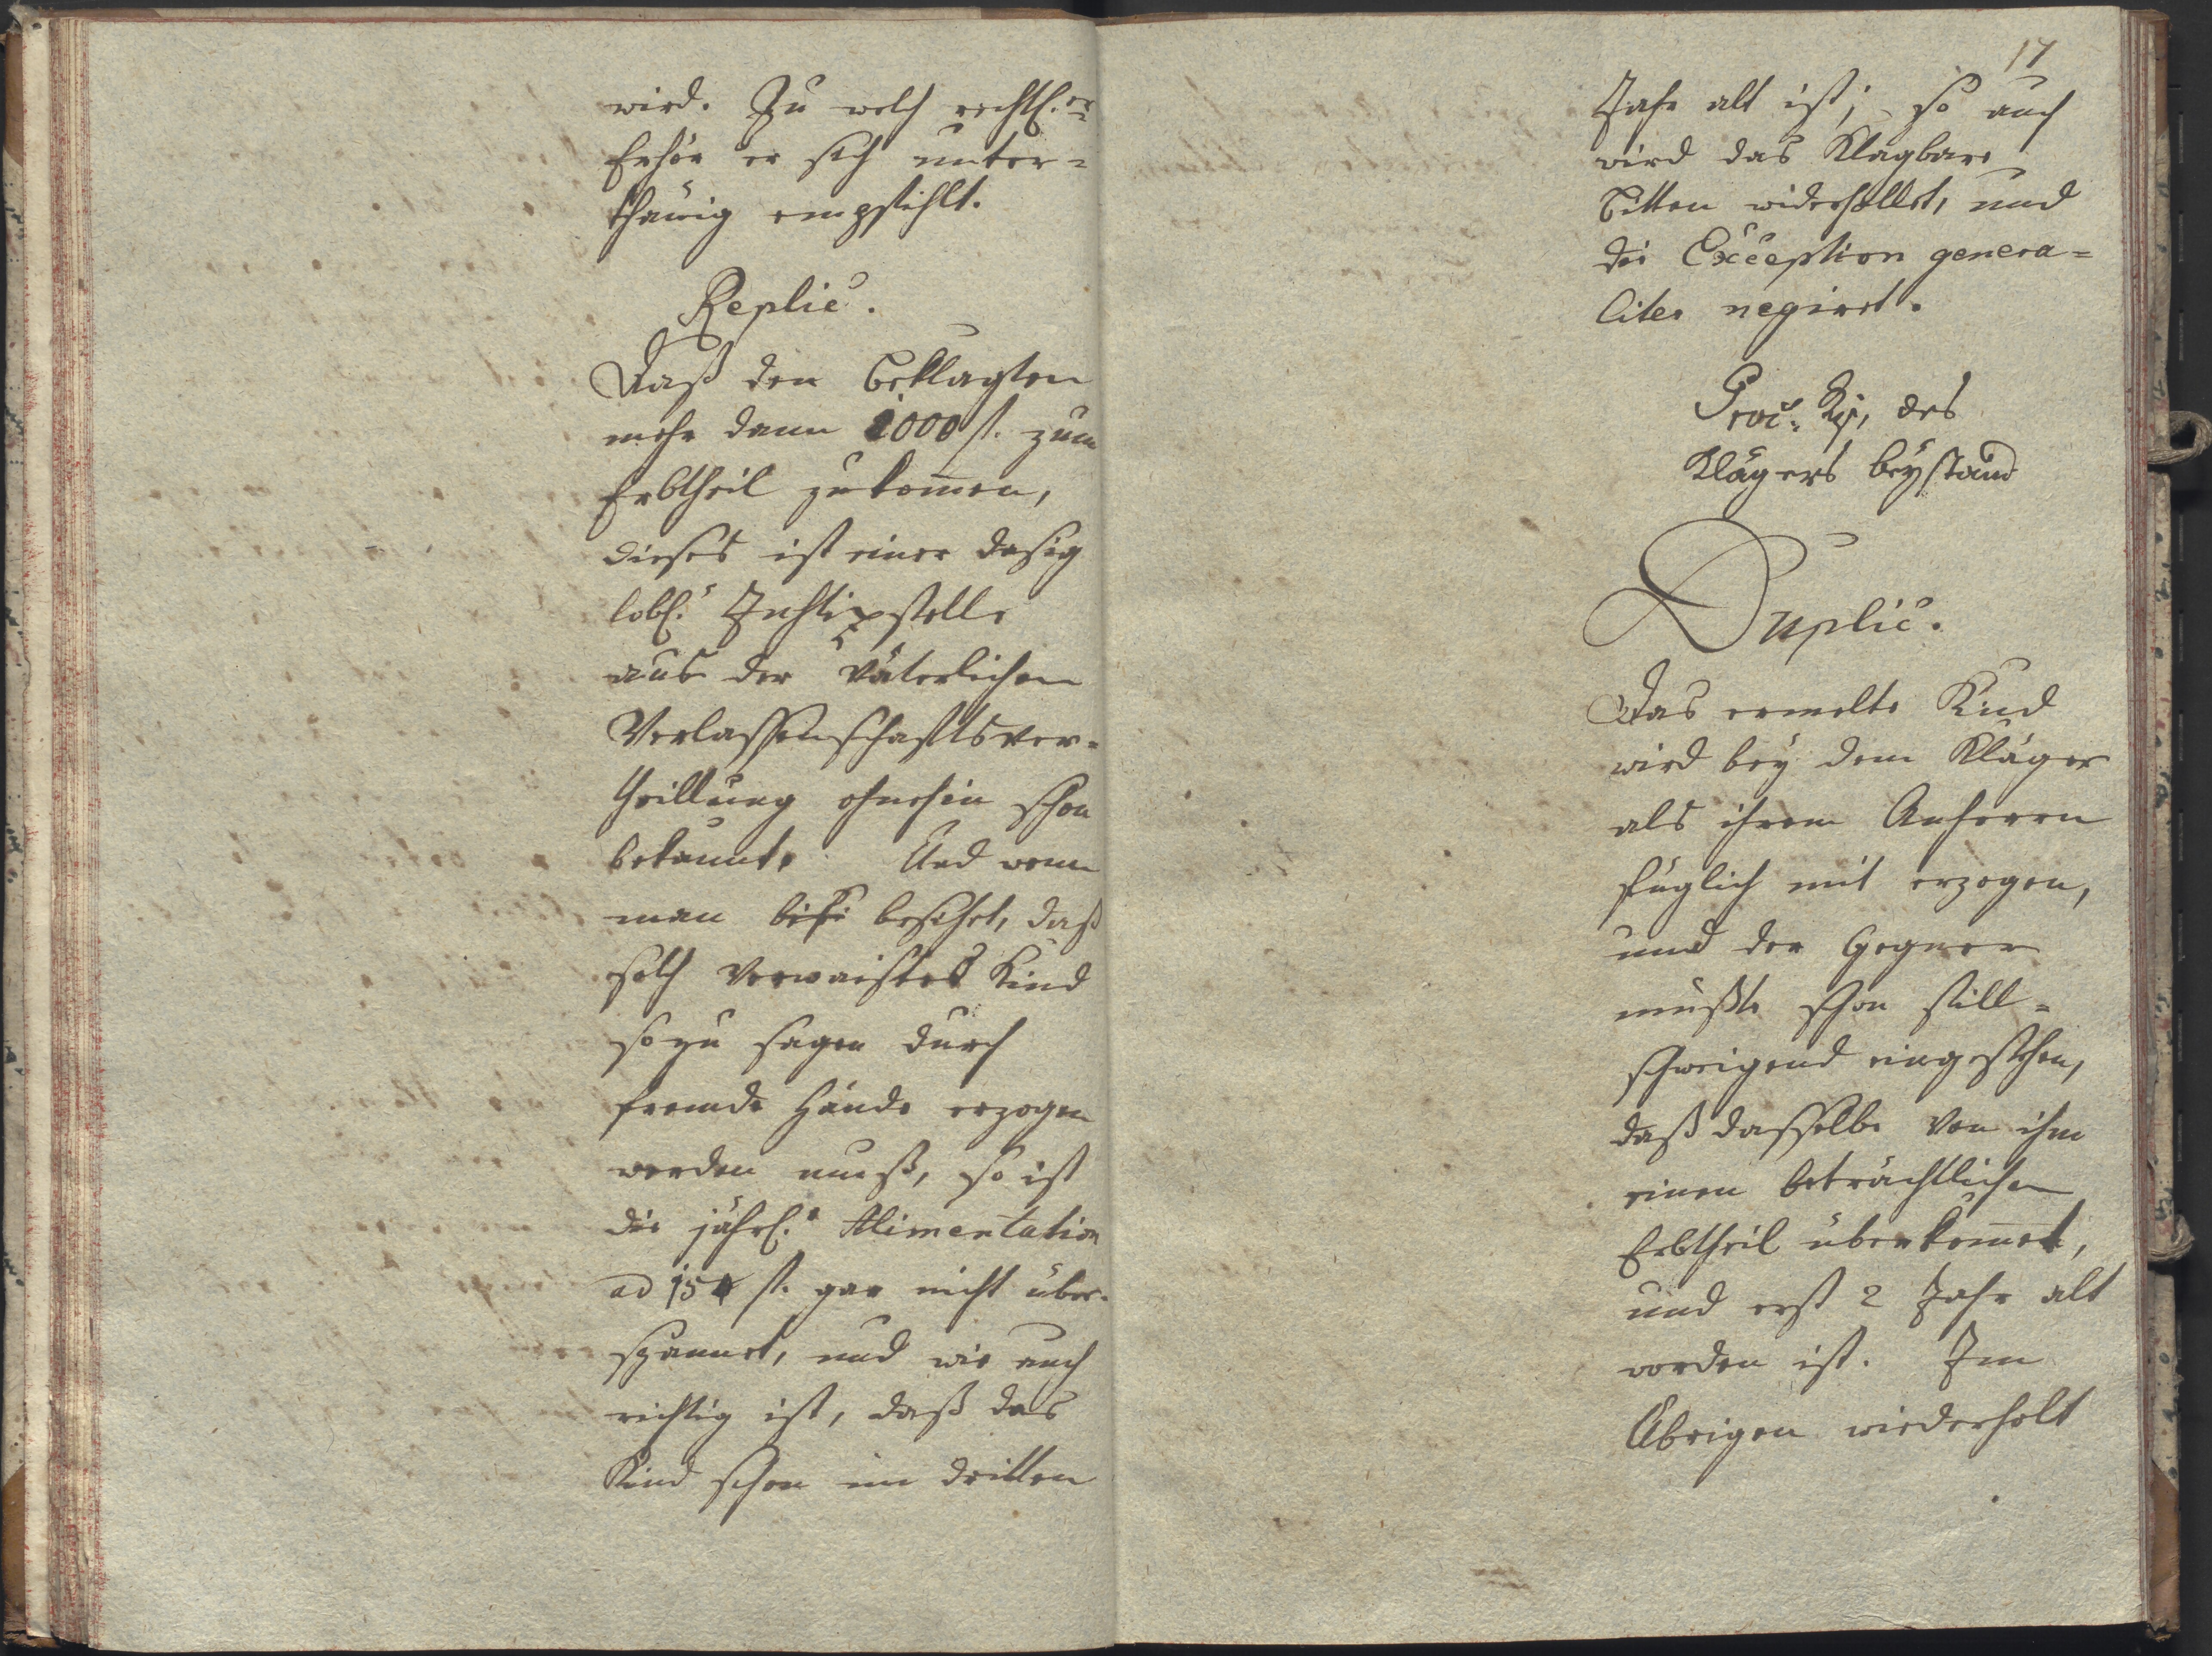 wird. Zu welch rechtl:er
Erhör er sich unter=
thänig empfihlt.
Replic.
Daß den Beklagten
mehr dann 1000 f. zum
Erbtheil zukom̄en,
dieses ist einer dasig
lobl: Justizstelle
aus der väterlichen
Verlassenschaftsver=
theillung ohnehin schon
bekannt. Und wenn
man besihet, daß
solch verwaistes Kind
so zu sagen durch
fremde Hände erzogen
werden muß, so ist
die jährl:e Alimentation
ad 15 f. gar nicht über=
spannet, und wie auch
richtig ist, daß das
Kind schon im dritten
17
Jahr alt ist; so auch
wird das Klagbare
Bitten widerhollet, und
die Exception genera=
liter negiret.
Proc: des
Klägers beÿstand
Duplic.
Das ermelte Kind
wird beÿ dem Kläger
als ihrem Anherrn
füglich mit erzogen,
und der Gegner
mußte schon still=
schweigend eingestehen,
daß dasselbe von ihm
einen beträchtlichen
Erbtheil überkom̄et,
und erst 2 Jahr alt
worden ist. Im
Übrigen wiederholt